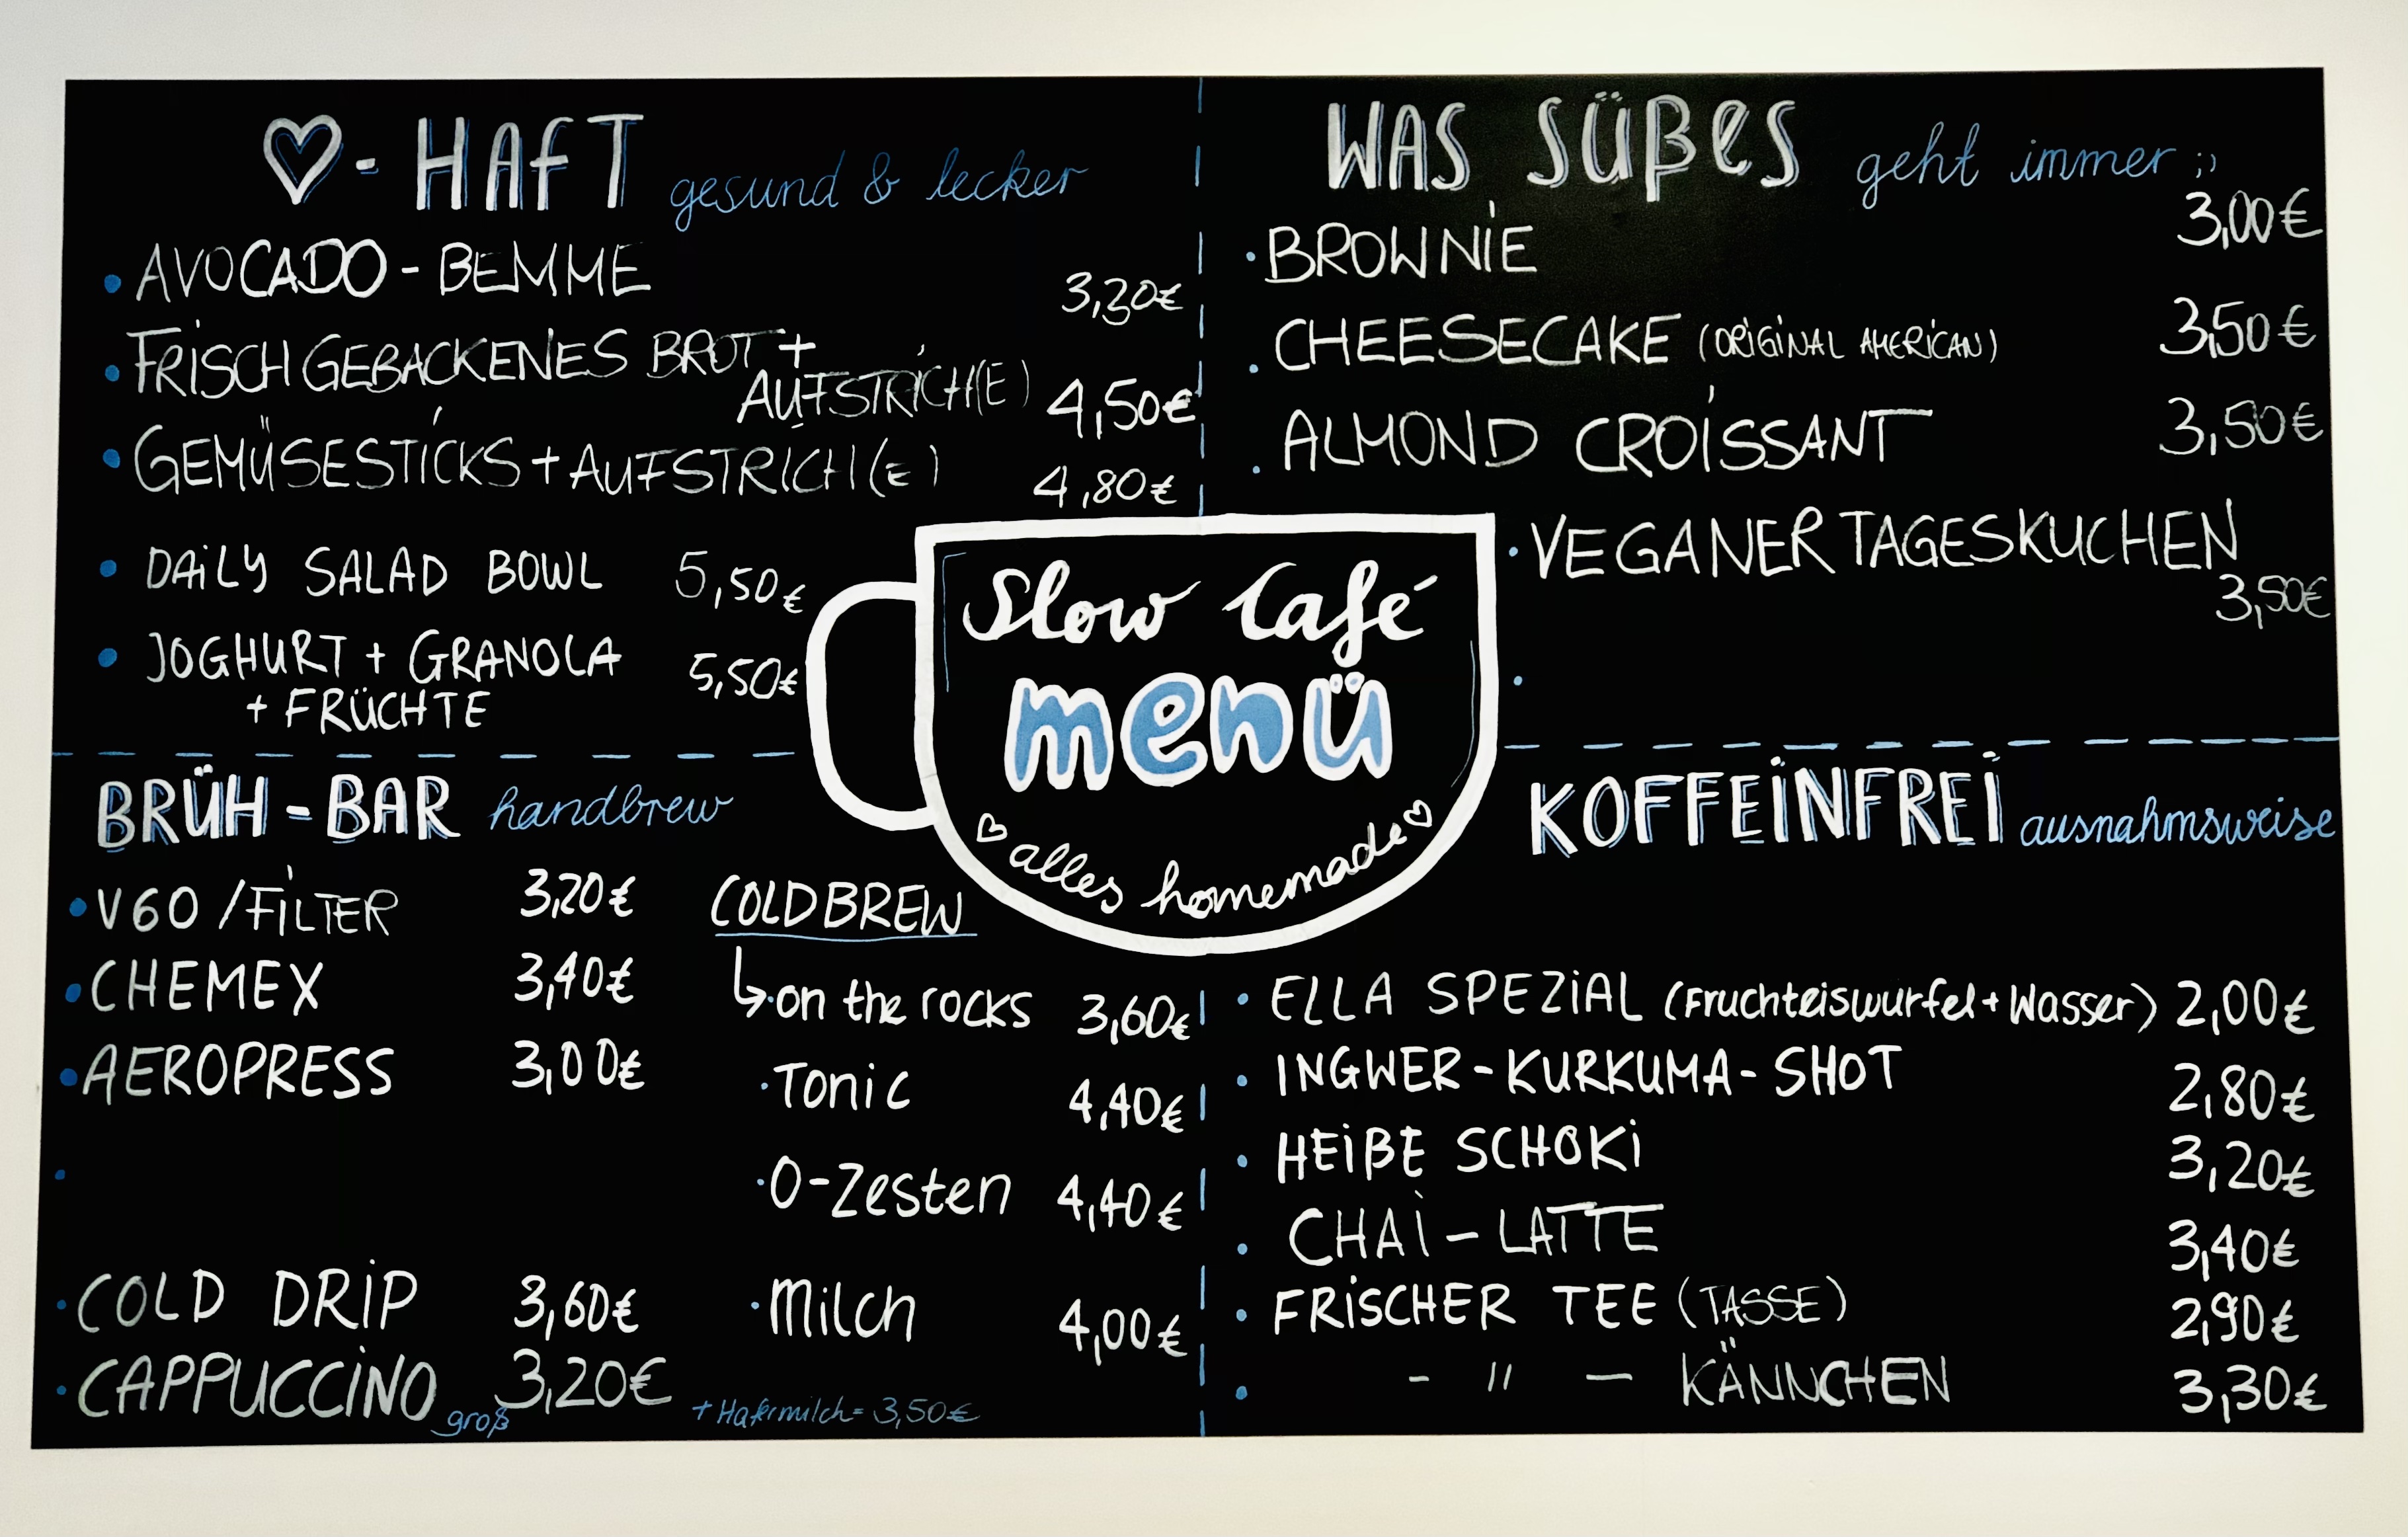 ♡-HAFT gesund & lecker
• AVOCADO-BEMME 3,20€
• FRISCH GEBACKENES BROT +
AUFSTRICH(E) 4,50€
• GEMÜSESTICKS + AUFSTRICH(E) 4,80€
• DAILY SALAD BOWL 5,50€
• JOGHURT + GRANOLA 5,50€
+ FRÜCHTE
WAS SÜßES geht immer ;)
• BROWNIE 3,00€
• CHEESECAKE (ORIGINAL AMERICAN) 3,50€
• ALMOND CROISSANT 3,50€
• VEGANER TAGESKUCHEN
3,50€
Slow Café
menü
♡ alles homemade ♡
BRÜH-BAR handbrew
• V60 / FILTER 3,20€
• CHEMEX 3,40€
• AEROPRESS 3,00€
• COLD DRIP 3,60€
• CAPPUCCINO groß 3,20€ + Hafermilch = 3,50€
COLDBREW
↳ • on the rocks 3,60€
• Tonic 4,40€
• O-Zesten 4,40€
• Milch 4,00€
KOFFEINFREI ausnahmsweise
• ELLA SPEZIAL (Fruchteiswurfel + Wasser) 2,00€
• INGWER-KURKUMA-SHOT 2,80€
• HEIßE SCHOKI 3,20€
• CHAI-LATTE 3,40€
• FRISCHER TEE (TASSE) 2,90€
• - " - KÄNNCHEN 3,30€